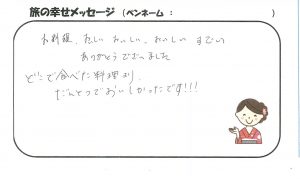 旅の幸せメッセージ (ペンネーム: )
お料理、おいしい おいしい、おいしい すごい
ありがとうございました
どこで食べた料理より、
だんとつでおいしかったです!!!